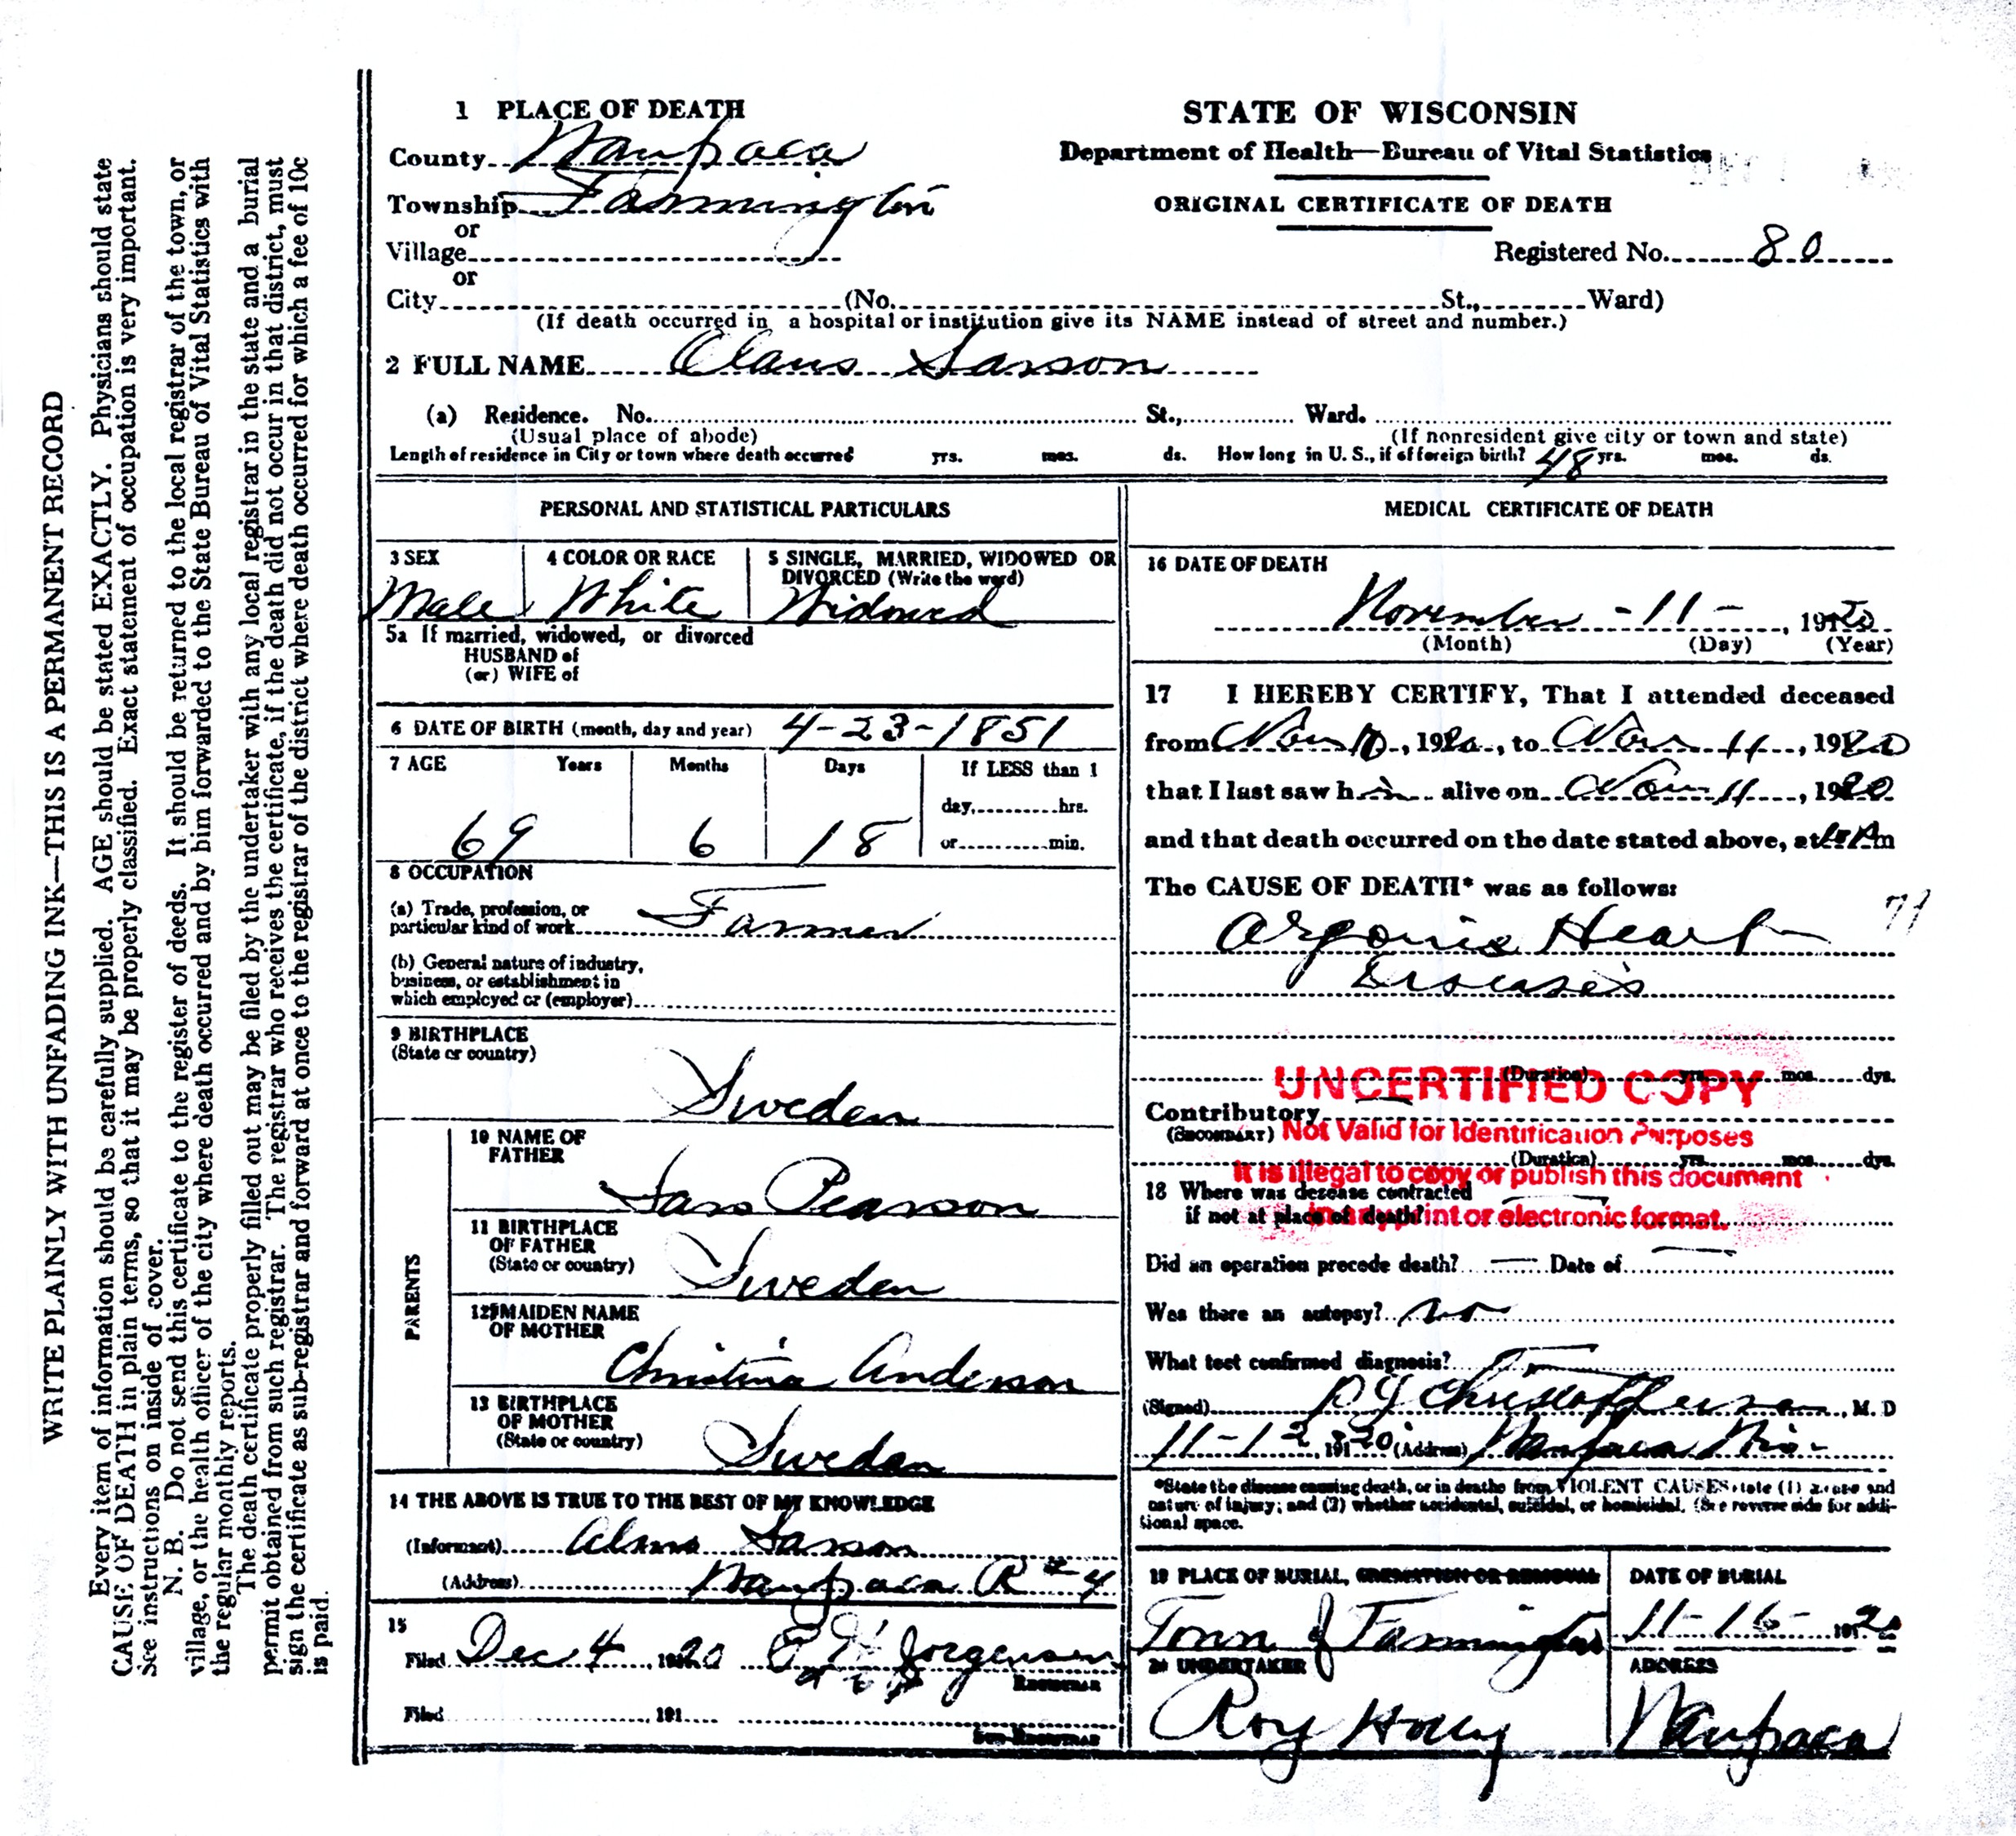 WRITE PLAINLY WITH UNFADING INK—THIS IS A PERMANENT RECORD
Every item of information should be carefully supplied. AGE should be stated EXACTLY. Physicians should state
CAUSE OF DEATH in plain terms, so that it may be properly classified. Exact statement of occupation is very important.
See instructions on inside of cover.
N. B. Do not send this certificate to the register of deeds. It should be returned to the local registrar of the town, or
village, or the health officer of the city where death occurred and by him forwarded to the State Bureau of Vital Statistics with
the regular monthly reports.
The death certificate properly filled out may be filed by the undertaker with any local registrar in the state and a burial
permit obtained from such registrar. The registrar who receives the certificate, if the death did not occur in that district, must
sign the certificate as sub-registrar and forward at once to the registrar of the district where death occurred for which a fee of 10c
is paid.
1 PLACE OF DEATH
County Waupaca
Township Farmington
or
Village
or
City (No. St., Ward)
(If death occurred in a hospital or institution give its NAME instead of street and number.)
STATE OF WISCONSIN
Department of Health—Bureau of Vital Statistics
ORIGINAL CERTIFICATE OF DEATH
Registered No. 80
2 FULL NAME Claus Larson
(a) Residence. No. St., Ward.
(Usual place of abode) (If nonresident give city or town and state)
Length of residence in City or town where death occurred yrs. mos. ds. How long in U. S., if of foreign birth? 48 yrs. mos. ds.
PERSONAL AND STATISTICAL PARTICULARS
3 SEX
Male
4 COLOR OR RACE
White
5 SINGLE, MARRIED, WIDOWED OR
DIVORCED (Write the word)
Widowed
5a If married, widowed, or divorced
HUSBAND of
(or) WIFE of
6 DATE OF BIRTH (month, day and year) 4-23-1851
7 AGE Years Months Days If LESS than 1
day, hrs.
or min.
69 6 18
8 OCCUPATION
(a) Trade, profession, or
particular kind of work Farmer
(b) General nature of industry,
business, or establishment in
which employed or (employer)
9 BIRTHPLACE
(State or country)
Sweden
PARENTS
10 NAME OF
FATHER
Lars Pearson
11 BIRTHPLACE
OF FATHER
(State or country)
Sweden
12 MAIDEN NAME
OF MOTHER
Christina Anderson
13 BIRTHPLACE
OF MOTHER
(State or country)
Sweden
14 THE ABOVE IS TRUE TO THE BEST OF MY KNOWLEDGE
(Informant) Alma Larson
(Address) Waupaca R #4
15
Filed Dec 4, 1920 Jorgensen
REGISTRAR
Filed , 191
SUB-REGISTRAR
MEDICAL CERTIFICATE OF DEATH
16 DATE OF DEATH
November -11- , 1920
(Month) (Day) (Year)
17 I HEREBY CERTIFY, That I attended deceased
from Nov 10, 1920, to Nov 11, 1920
that I last saw him alive on Nov 11, 1920
and that death occurred on the date stated above, at m
The CAUSE OF DEATH* was as follows:
Organic Heart
Disease
(Duration) yrs. mos. dys.
Contributory
(SECONDARY)
(Duration) yrs. mos. dys.
UNCERTIFIED COPY
Not Valid for Identification Purposes
It is illegal to copy or publish this document
in any print or electronic format.
18 Where was desease contracted
if not at place of death?
Did an operation precede death? — Date of —
Was there an autopsy? no
What test confirmed diagnosis?
(Signed) P J Christofferson, M. D
11-12, 1920 (Address) Waupaca Wis.
*State the disease causing death, or in deaths from VIOLENT CAUSES state (1) means and
nature of injury; and (2) whether accidental, suicidal, or homicidal. (See reverse side for addi-
tional space.
19 PLACE OF BURIAL, CREMATION OR REMOVAL
Town of Farmington
DATE OF BURIAL
11-16- 1920
20 UNDERTAKER
Roy Holly
ADDRESS
Waupaca